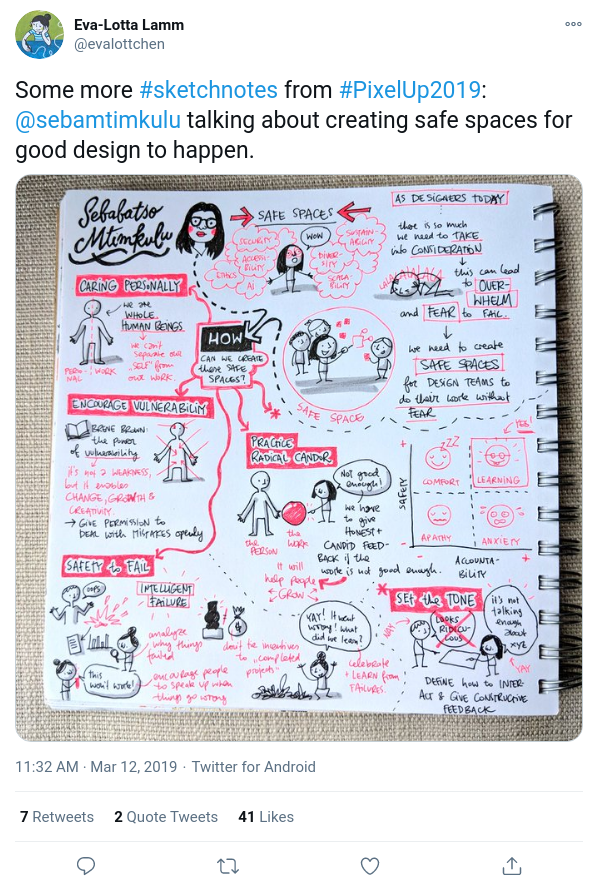 Eva-Lotta Lamm
@evalottchen
Some more #sketchnotes from #PixelUp2019:
@sebamtimkulu talking about creating safe spaces for
good design to happen.
Sebabatso
Mtimkulu
SAFE SPACES
WOW
SECURITY
ACCESSI-
BILITY
ETHICS
AI
SUSTAIN
ABILITY
DIVER-
SITY
SCALA
BILITY
AS DESIGNERS TODAY
there is so much
we need to TAKE
into CONSIDERATION
this can lead
to OVER-
WHELM
and FEAR to FAIL.
we need to create
SAFE SPACES
for DESIGN TEAMS to
do their work without
FEAR
CARING PERSONALLY
we are
WHOLE
HUMAN BEINGS
we can't
separate our
"self" from
our work.
PERSO-
NAL
WORK
HOW
CAN WE CREATE
these SAFE
SPACES?
SAFE SPACE
ENCOURAGE VULNERABILITY
BRENE BROWN:
the power
of vulnerability
it's not a WEAKNESS,
but it enables
CHANGE, GROWTH &
CREATIVITY.
→ GIVE PERMISSION to
DEAL with MISTAKES openly
PRACTICE
RADICAL CANDOR
Not good
enough!
the
PERSON
the
WORK
we have
to give
HONEST +
CANDID FEED-
BACK if the
work is not good enough.
It will
help people
GROW
YES!
+
SAFETY
-
ZZZ
COMFORT
LEARNING
APATHY
ANXIETY
+
ACCOUNTA-
BILITY
SAFETY to FAIL
OOPS
INTELLIGENT
FAILURE
analyze
why things
failed
this
won't work!
encourage people
to speak up when
things go wrong
don't tie incentives
to "completed
projects"
YAY! It went
wrong! What
did we learn?
celebrate
+ LEARN from
FAILURES.
SET the TONE
NAY
LOOKS
RIDICU-
LOUS
it's not
talking
enough
about
XYZ
YAY
DEFINE how to INTER-
ACT & GIVE CONSTRUCTIVE
FEEDBACK
11:32 AM · Mar 12, 2019 · Twitter for Android
7 Retweets 2 Quote Tweets 41 Likes